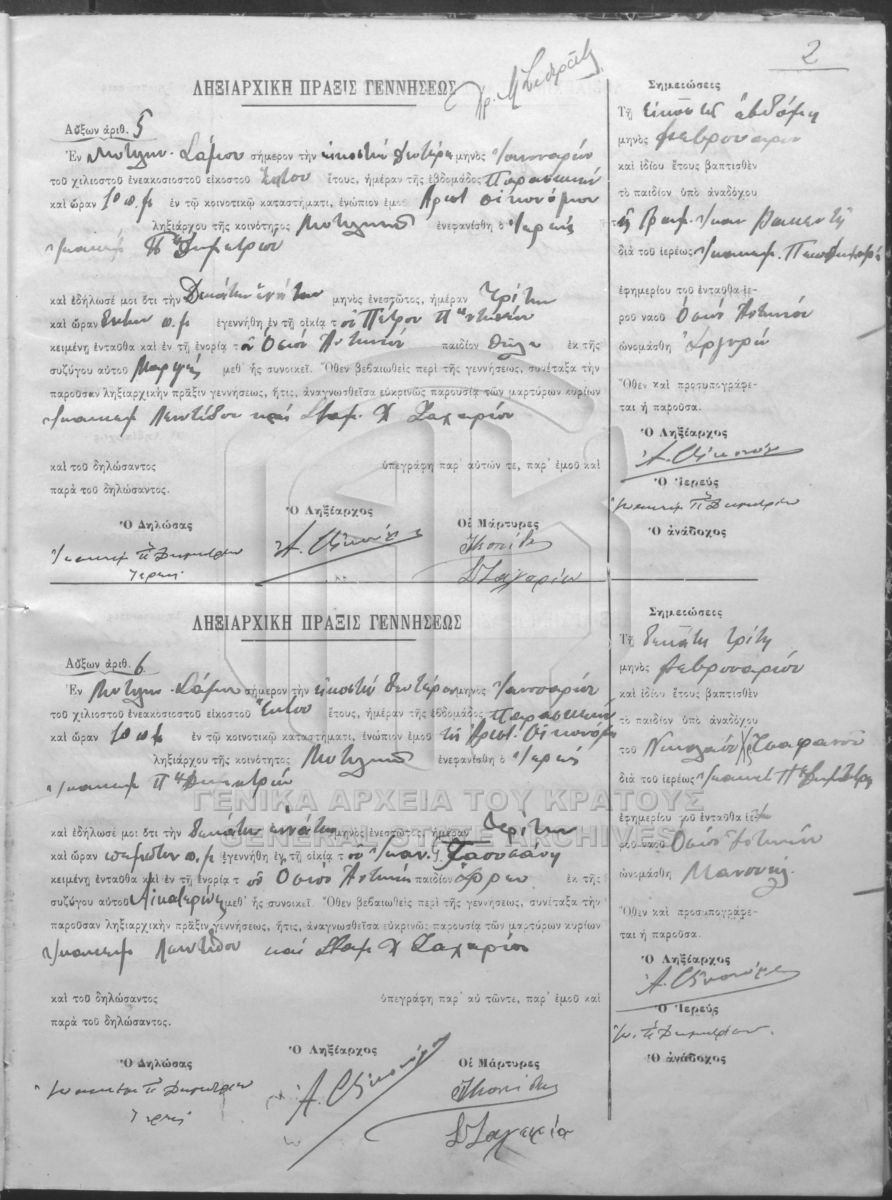 2
ΛΗΞΙΑΡΧΙΚΗ ΠΡΑΞΙΣ ΓΕΝΝΗΣΕΩΣ
Αὔξων ἀριθ. 5
Ἐν Μυτιλην. Σάμου σήμερον τὴν εἰκοστὴν δευτέραν μηνὸς Ἰανουαρίου
τοῦ χιλιοστοῦ ἐνεακοσιοστοῦ εἰκοστοῦ ἕκτου ἔτους, ἡμέραν τῆς ἑβδομάδος Παρασκευὴν
καὶ ὥραν 10 π.μ. ἐν τῷ κοινοτικῷ καταστήματι, ἐνώπιον ἐμοῦ Ἀριστ. Οἰκονόμου
ληξιάρχου τῆς κοινότητος ἐνεφανίσθη ὁ Ἱερεὺς
Ἰωακεὶμ Π Δημητρίου
καὶ ἐδήλωσέ μοι ὅτι τὴν Δεκάτην ἐνάτην μηνὸς ἐνεστῶτος, ἡμέραν Τρίτην
καὶ ὥραν ἕκτην π.μ. ἐγεννήθη ἐν τῇ οἰκίᾳ τοῦ Πέτρου
κειμένῃ ἐνταῦθα καὶ ἐν τῇ ἐνορίᾳ τοῦ Ὁσίου παιδίον θῆλυ ἐκ τῆς
συζύγου αὐτοῦ μεθ᾿ ἧς συνοικεῖ. Ὅθεν βεβαιωθεὶς περὶ τῆς γεννήσεως, συνέταξα τὴν
παροῦσαν ληξιαρχικὴν πρᾶξιν γεννήσεως, ἥτις, ἀναγνωσθεῖσα εὐκρινῶς παρουσίᾳ τῶν μαρτύρων κυρίων
καὶ Σταμ. Χ Ζαχαρίου
καὶ τοῦ δηλώσαντος ὑπεγράφη παρ᾿ αὐτῶν τε, παρ᾿ ἐμοῦ καὶ
παρὰ τοῦ δηλώσαντος.
Ὁ Δηλώσας Ὁ Ληξίαρχος Οἱ Μάρτυρες
Ἰωακεὶμ Π Δημητρίου Α. Οἰκονόμου
Ἱερεὺς Σ Ζαχαρίου
Σημειώσεις
Τῇ εἰκοστῇ ἑβδόμῃ
μηνὸς Φεβρουαρίου
καὶ ἰδίου ἔτους βαπτισθὲν
τὸ παιδίον ὑπὸ ἀναδόχου
διὰ τοῦ ἱερέως Ἰωακεὶμ
ἐφημερίου τοῦ ἐνταῦθα ἱε-
ροῦ ναοῦ Ὁσίου
ὠνομάσθη Ἀργυρώ
Ὅθεν καὶ προσυπογράφε-
ται ἡ παροῦσα.
Ὁ Ληξίαρχος
Α. Οἰκονόμου
Ὁ Ἱερεύς
Ἰωακεὶμ Π Δημητρίου
Ὁ ἀνάδοχος
ΛΗΞΙΑΡΧΙΚΗ ΠΡΑΞΙΣ ΓΕΝΝΗΣΕΩΣ
Αὔξων ἀριθ. 6
Ἐν Μυτιλην. Σάμου σήμερον τὴν εἰκοστὴν δευτέραν μηνὸς Ἰανουαρίου
τοῦ χιλιοστοῦ ἐνεακοσιοστοῦ εἰκοστοῦ ἕκτου ἔτους, ἡμέραν τῆς ἑβδομάδος Παρασκευὴν
καὶ ὥραν 10 π.μ. ἐν τῷ κοινοτικῷ καταστήματι, ἐνώπιον ἐμοῦ Ἀριστ. Οἰκονόμου
ληξιάρχου τῆς κοινότητος ἐνεφανίσθη ὁ Ἱερεὺς
Ἰωακεὶμ Π Δημητρίου
ΓΕΝΙΚΑ ΑΡΧΕΙΑ ΤΟΥ ΚΡΑΤΟΥΣ
GENERAL STATE ARCHIVES
καὶ ἐδήλωσέ μοι ὅτι τὴν δεκάτην ἐνάτην μηνὸς ἐνεστῶτος, ἡμέραν Τρίτην
καὶ ὥραν π.μ. ἐγεννήθη ἐν τῇ οἰκίᾳ τοῦ
κειμένῃ ἐνταῦθα καὶ ἐν τῇ ἐνορίᾳ τοῦ Ὁσίου παιδίον ἄρρεν ἐκ τῆς
συζύγου αὐτοῦ Αἰκατερίνης μεθ᾿ ἧς συνοικεῖ. Ὅθεν βεβαιωθεὶς περὶ τῆς γεννήσεως, συνέταξα τὴν
παροῦσαν ληξιαρχικὴν πρᾶξιν γεννήσεως, ἥτις, ἀναγνωσθεῖσα εὐκρινῶς παρουσίᾳ τῶν μαρτύρων κυρίων
καὶ Σταμ. Χ Ζαχαρίου
καὶ τοῦ δηλώσαντος ὑπεγράφη παρ᾿ αὐ τῶντε, παρ᾿ ἐμοῦ καὶ
παρὰ τοῦ δηλώσαντος.
Ὁ Δηλώσας Ὁ Ληξίαρχος Οἱ Μάρτυρες
Ἰωακεὶμ Π Δημητρίου Α. Οἰκονόμου
Ἱερεὺς Σ Ζαχαρίου
Σημειώσεις
Τῇ δεκάτῃ τρίτῃ
μηνὸς Φεβρουαρίου
καὶ ἰδίου ἔτους βαπτισθὲν
τὸ παιδίον ὑπὸ ἀναδόχου
τοῦ Νικολάου
διὰ τοῦ ἱερέως Ἰωακεὶμ Π Δημητρίου
ἐφημερίου τοῦ ἐνταῦθα ἱε-
ροῦ ναοῦ Ὁσίου
ὠνομάσθη Μανουήλ
Ὅθεν καὶ προσυπογράφε-
ται ἡ παροῦσα.
Ὁ Ληξίαρχος
Α. Οἰκονόμου
Ὁ Ἱερεύς
Ἰω. Π Δημητρίου
Ὁ ἀνάδοχος